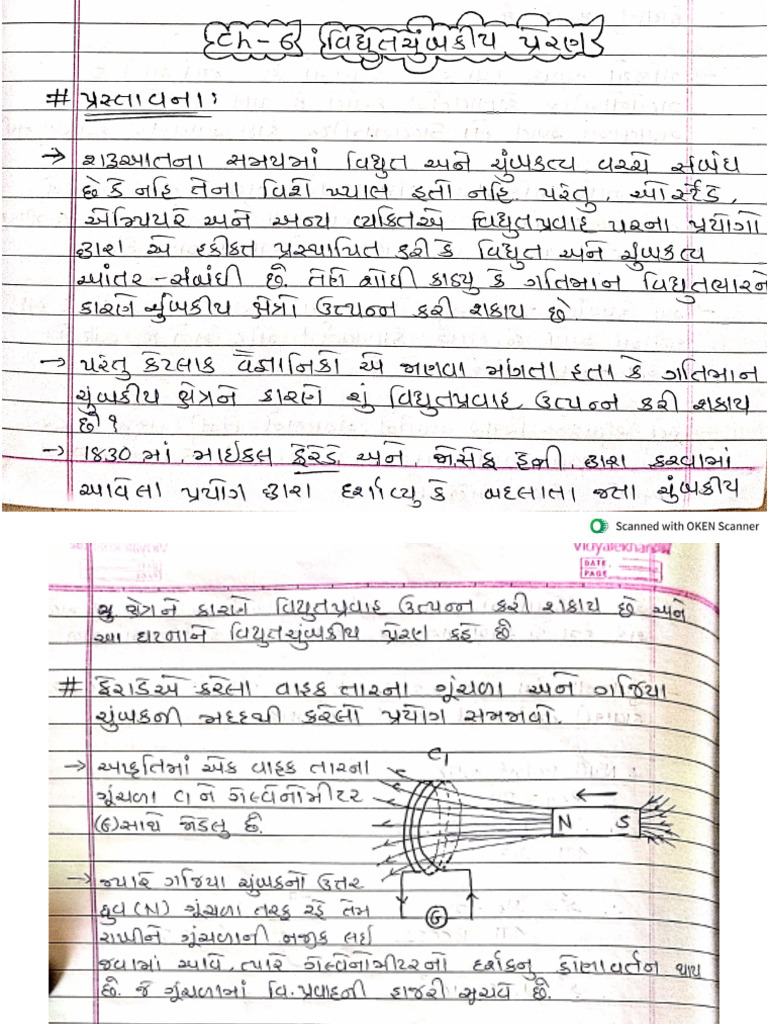 Ch-6 વિદ્યુતચુંબકીય પ્રેરણ
# પ્રસ્તાવના:
→ શરૂઆતના સમયમાં વિદ્યુત અને ચુંબકત્વ વચ્ચે સંબંધ
છે કે નહિ તેના વિશે ખ્યાલ હતો નહિ. પરંતુ, ઓર્સ્ટેડ,
એમ્પિયરે અને અન્ય વ્યકિતએ વિદ્યુતપ્રવાહ પરના પ્રયોગો
દ્વારા એ હકીકત પ્રસ્થાપિત કરી કે વિદ્યુત અને ચુંબકત્વ
આંતર-સંબંધી છે. તેણે શોધી કાઢ્યુ કે ગતિમાન વિદ્યુતભારને
કારણે ચુંબકીય ક્ષેત્રો ઉત્પન્ન કરી શકાય છે.
→ પરંતુ કેટલાક વૈજ્ઞાનિકો એ જાણવા માંગતા હતા કે ગતિમાન
ચુંબકીય ક્ષેત્રને કારણે શું વિદ્યુતપ્રવાહ ઉત્પન્ન કરી શકાય
છે?
→ 1830 માં, માઇકલ ફેરેડે અને, જોસેફ હેન્રી, દ્વારા કરવામાં
આવેલા પ્રયોગ દ્વારા દર્શાવ્યુ કે બદલાતા જતા ચુંબકીય
Scanned with OKEN Scanner
Vidyalekhan
DATE
PAGE
ક્ષેત્રને કારણે વિદ્યુતપ્રવાહ ઉત્પન્ન કરી શકાય છે અને
આ ઘટનાને વિદ્યુતચુંબકીય પ્રેરણ કહે છે.
# ફેરાડેએ કરેલા વાહક તારના ગૂંચળા અને ગજિયા
ચુંબકની મદદથી કરેલો પ્રયોગ સમજાવો.
→ આકૃતિમાં એક વાહક તારના
ગૂંચળા C1 ને ગેલ્વેનોમીટર
(G) સાથે જોડેલુ છે.
C1
N S
G
→ જ્યારે ગજિયા ચુંબકનો ઉત્તર
ધ્રુવ (N) ગૂંચળા તરફ રહે તેમ
રાખીને ગૂંચળાની નજીક લઇ
જવામાં આવે, ત્યારે ગેલ્વેનોમીટરનો દર્શકનુ કોણાવર્તન થાય
છે. જે ગૂંચળામાં વિ.પ્રવાહની હાજરી સૂચવે છે.